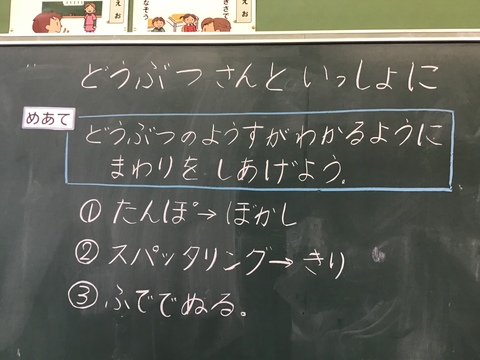 どうぶつさんといっしょに
めあて
どうぶつのようすがわかるように
まわりをしあげよう.
① たんぽ→ぼかし
② スパッタリング→きり
③ ふででぬる。